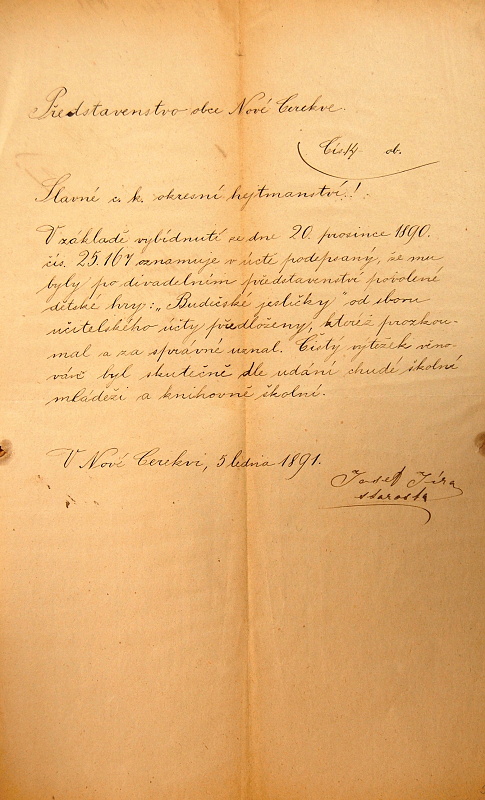 Představenstvo obce Nové Cerekve.
ob.
Slavné c. k. okresní hejtmanství!
V základě vybídnutí ze dne 20. prosince 1890.
čís. 25.167 oznamuje v úctě podepsaný, že mu
byly po divadelním představení povolené
dětské hry: „Budičské jesličky" od sboru
učitelského účty předloženy, kteréž prozkou-
mal a za správné uznal. Čistý výtěžek věno-
ván byl skutečně dle udání chudé školní
mládeži a knihovně školní.
V Nové Cerekvi, 5 ledna 1891.
Josef Jíra
starosta